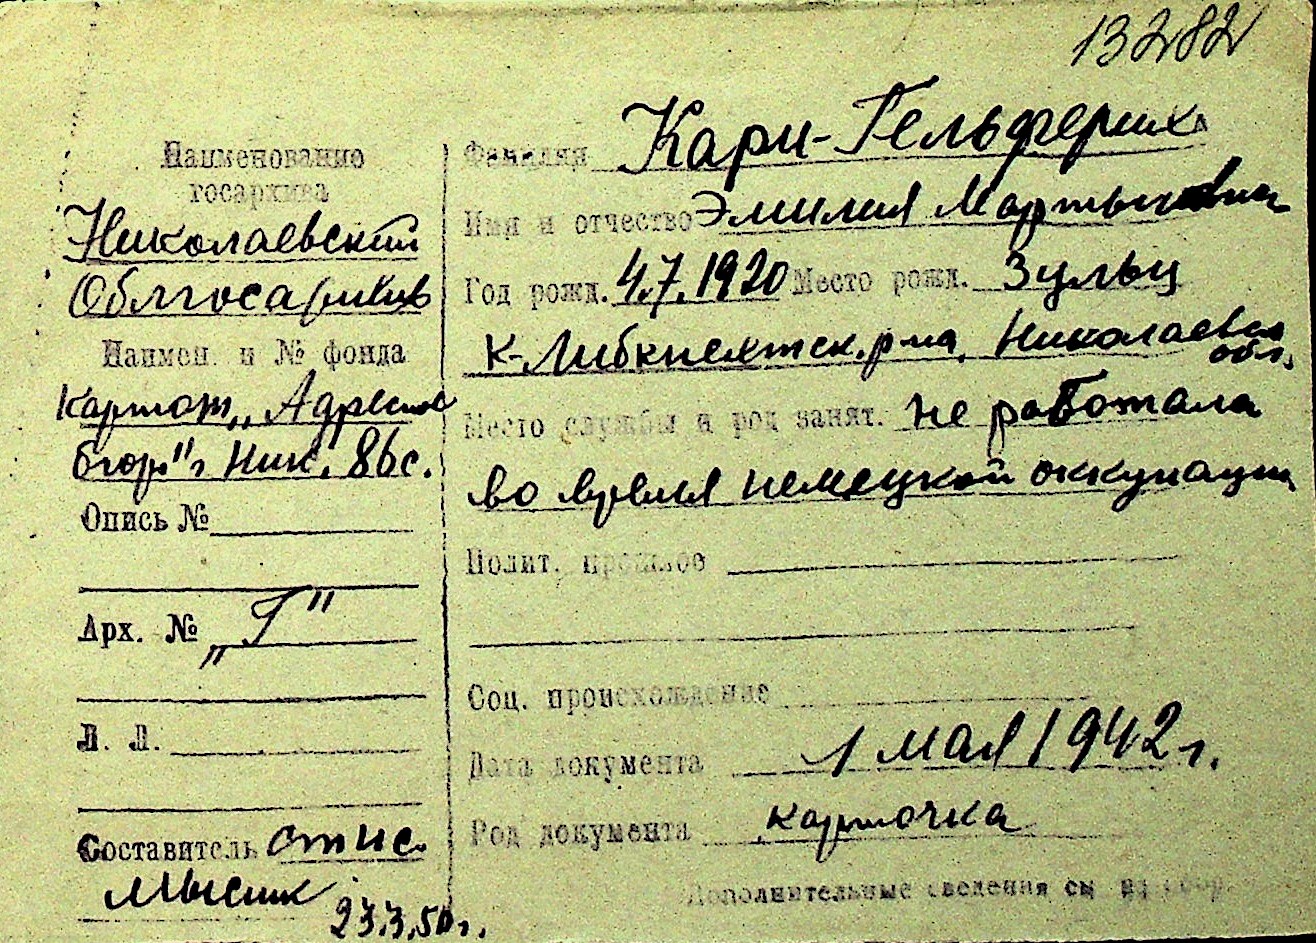 13282
Наименование
госархива
Николаевский
Облгосархив
Наимен. и № фонда
Картот. „Адресное
бюро" г. Ник. 86с.
Опись №
Арх. № „Г"
Л. Л.
Составитель
Мысик 23.3.50г.
Фамилия Кари-Гельферих
Имя и отчество Эмилия Мартыновна
Год рожд. 4.7.1920 Место рожд. Зульц
К-Либкнехтск. р-на, Николаевск
обл.
Место службы и род занят. не работала
во время немецкой оккупации
Полит. прошлое
Соц. происхождение
Дата документа 1 мая 1942 г.
Род документа карточка
Дополнительные сведения см. на обор.